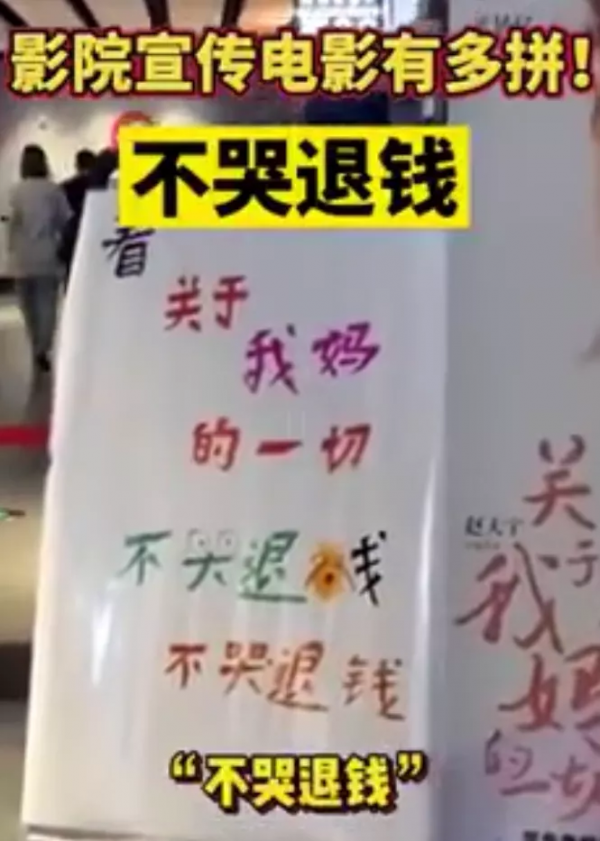 影院宣传电影有多拼！
不哭退钱
看
关于
我妈
的一切
不哭退钱
不哭退钱
“不哭退钱”
赵天宇
关于
我妈
的一切